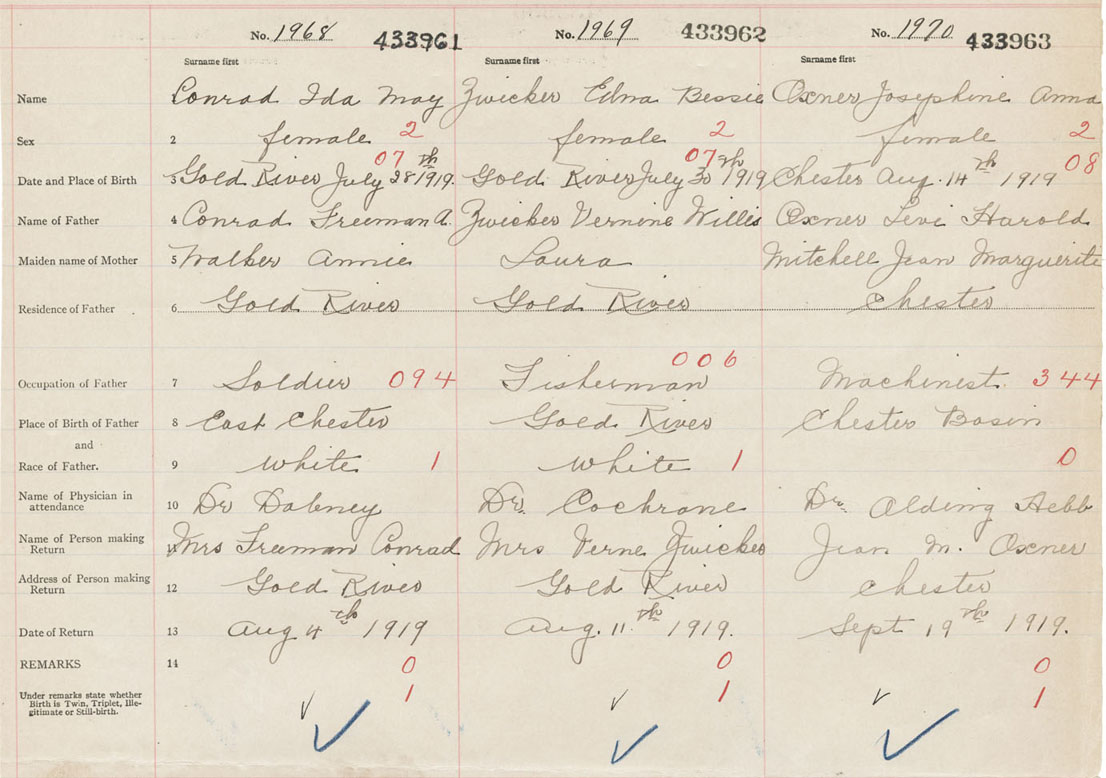 No. 1968 433961 No. 1969 433962 No. 1970 433963
Surname first Surname first Surname first
Name Conrad Ida May Zwicker Edna Bessie Oxner Josephine Anna
Sex 2 female 2 female 2 female 2
07 07 08
Date and Place of Birth 3 Gold River July 28th 1919. Gold River July 30th 1919 Chester Aug. 14th 1919
Name of Father 4 Conrad Freeman A. Zwicker Vernine Willis Oxner Levi Harold
Maiden name of Mother 5 Walker Annie Laura Mitchell Jean Marguerite
Residence of Father 6 Gold River Gold River Chester
Occupation of Father 7 Soldier 094 Fisherman 006 Machinist 344
Place of Birth of Father 8 East Chester Gold River Chester Basin
and
Race of Father. 9 White 1 White 1 0
Name of Physician in
attendance 10 Dr Dabney Dr. Cochrane Dr. Hebb
Name of Person making
Return 11 Mrs Freeman Conrad Mrs Verne Zwicker Jean M. Oxner
Address of Person making
Return 12 Gold River Gold River Chester
Date of Return 13 Aug 4th 1919 Aug. 11th 1919. Sept 19th 1919.
REMARKS 14 0 0 0
Under remarks state whether
Birth is Twin, Triplet, Ille-
gitimate or Still-birth. 1 1 1